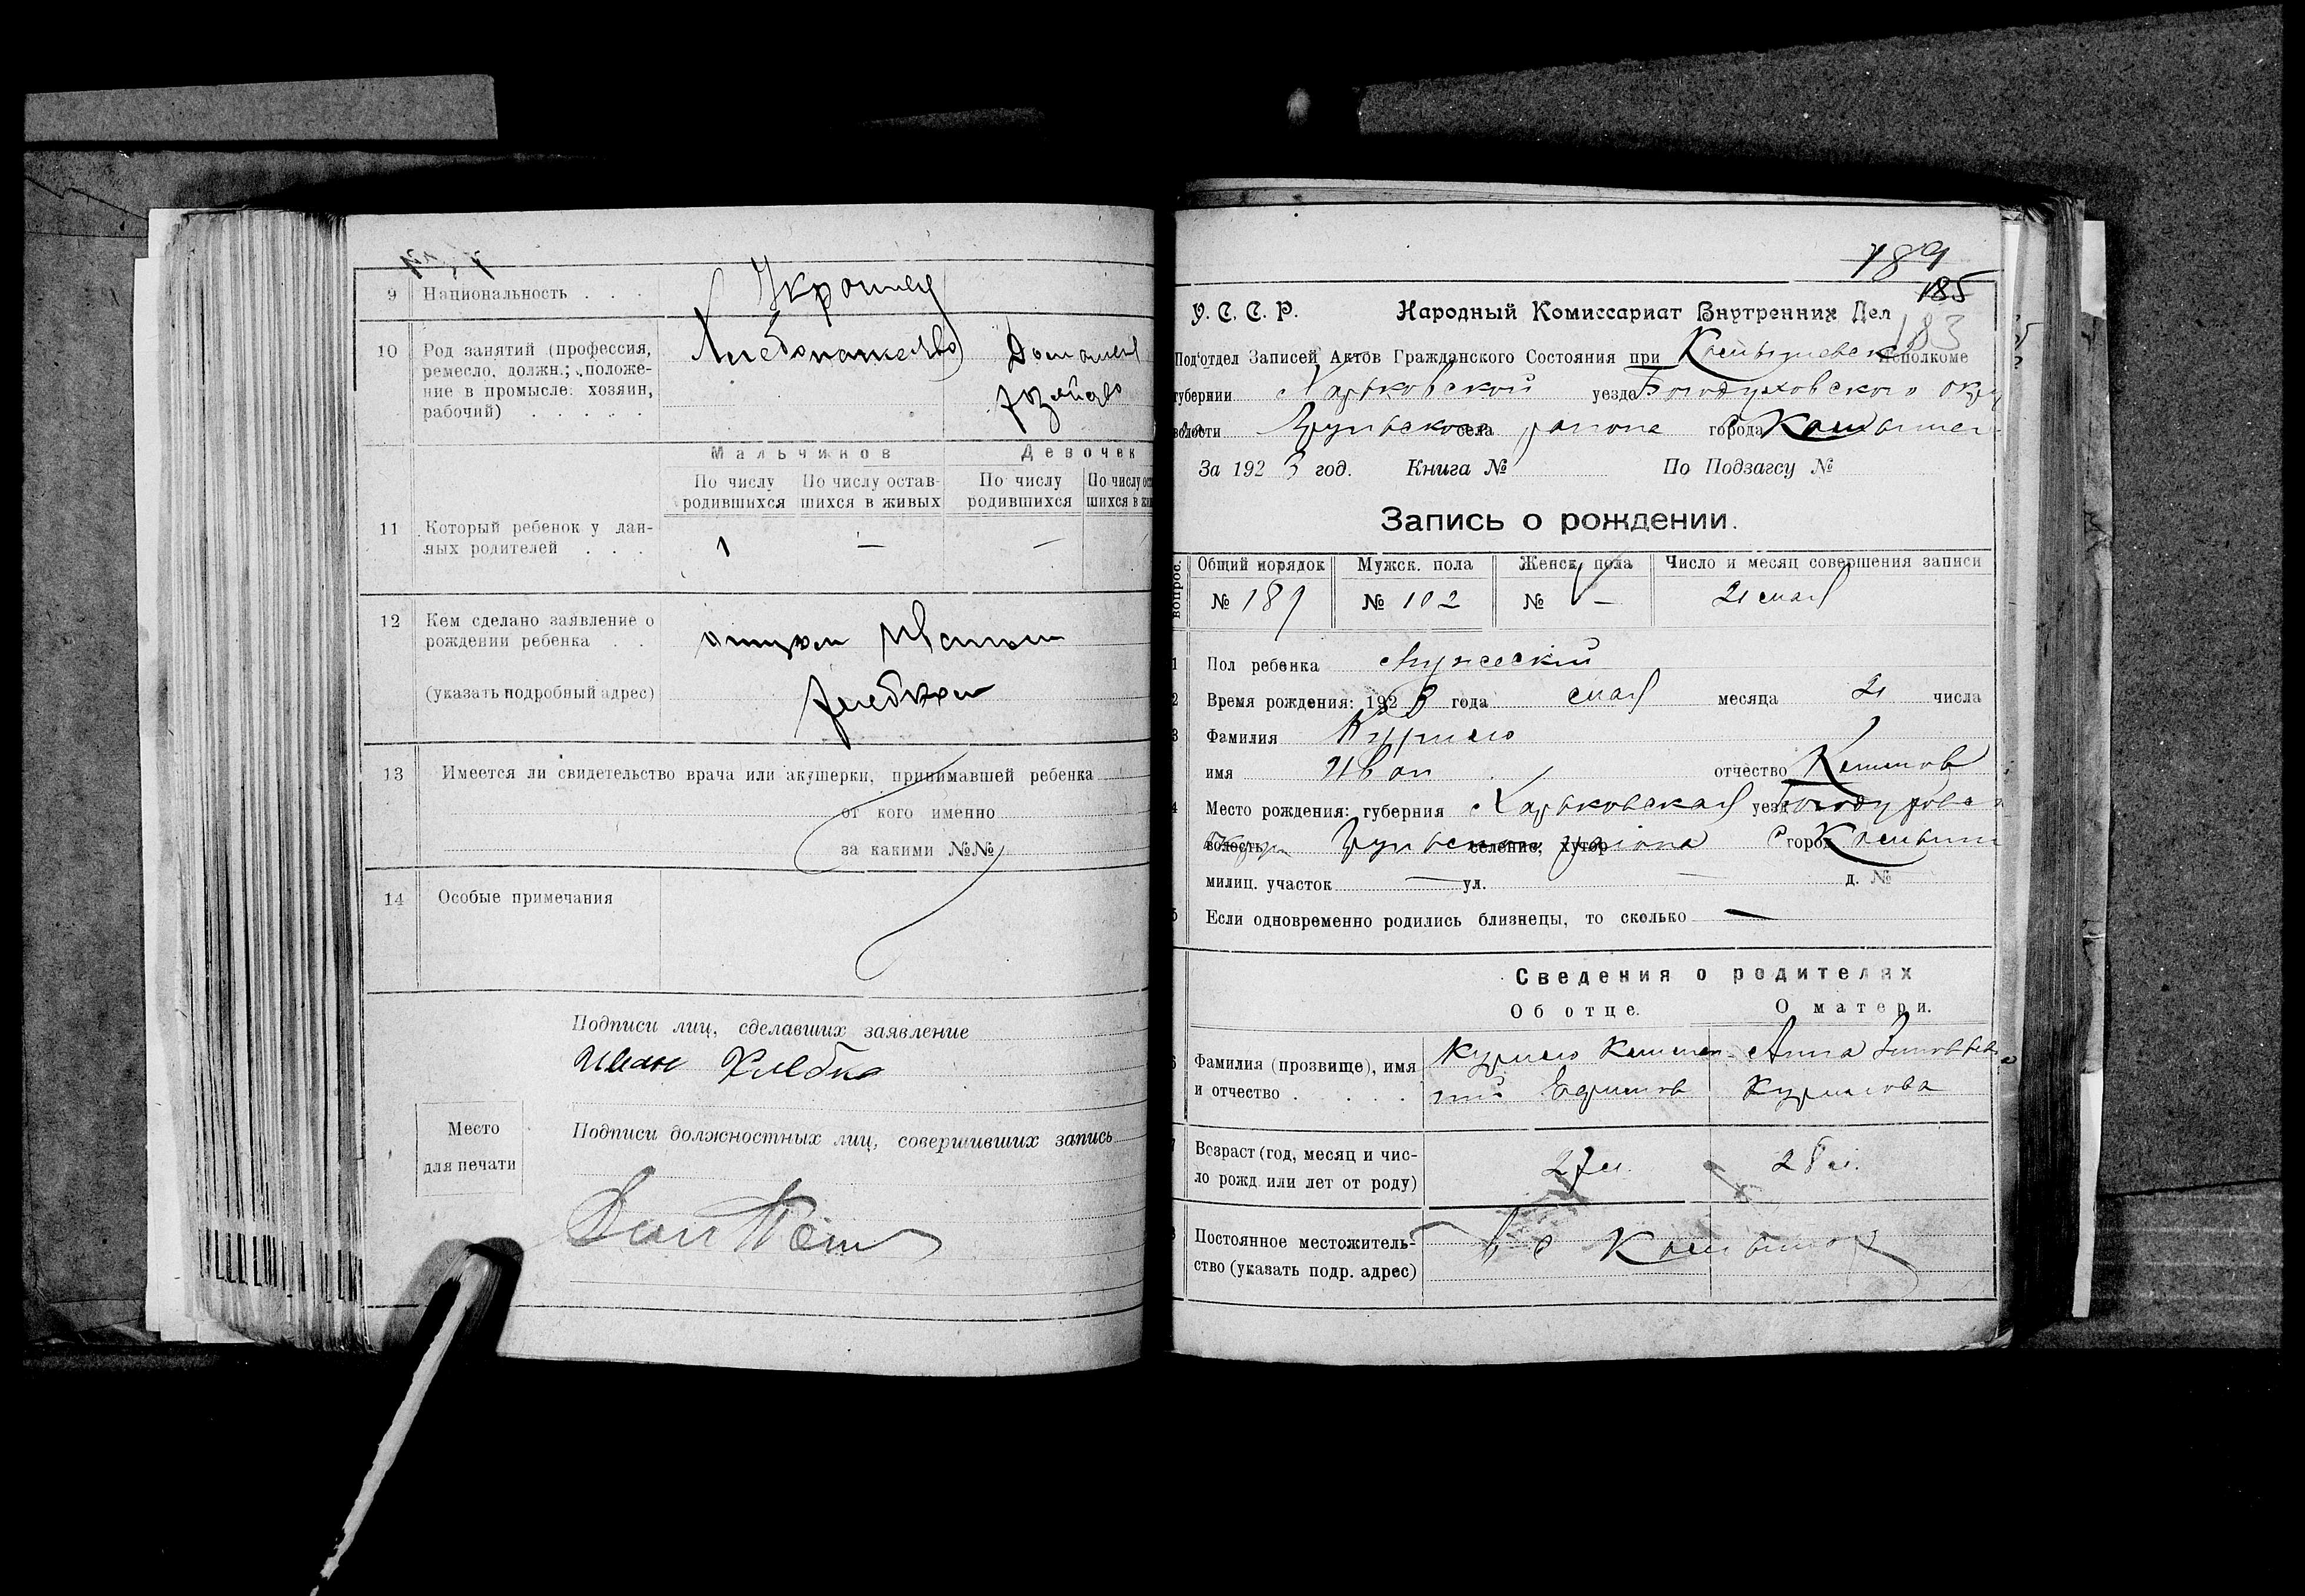 9 Национальность . . . Украинец
10 Род занятий (профессия, Хлебопашество Домашнее
ремесло, должн.; положе-
ние в промысле: хозяин, хозяйство
рабочий) . . . . .
Мальчиков Девочек
По числу По числу остав- По числу По числу ос
родившихся шихся в живых родившихся шихся в жи
11 Который ребенок у дан-
ных родителей . . . 1 — —
12 Кем сделано заявление о
рождении ребенка . . отцом Иваном
(указать подробный адрес) Хлебком
13 Имеется ли свидетельство врача или акушерки, принимавшей ребенка
от кого именно
за какими №№
14 Особые примечания
Подписи лиц, сделавших заявление
Иван Хлебко
Место
для печати
Подписи должностных лиц, совершивших запись
189
185
183
У. С. С. Р. Народный Комиссариат Внутренних Дел
Под'отдел Записей Актов Гражданского Состояния при Исполкоме
губернии Харьковской уезда Богодуховского окру
волости села района города
За 1923 год. Книга № По Подзагсу №
Запись о рождении.
вопрос. Общий порядок Мужск. пола Женск. пола Число и месяц совершения записи
№ 189 № 102 № — 21 мая
1 Пол ребенка Мужеский
2 Время рождения: 1923 года мая месяца 21 числа
3 Фамилия Курило
имя Иван отчество
4 Место рождения: губерния Харьковская уезд
волость селение, хутор района С город
милиц. участок — ул. — д. №
5 Если одновременно родились близнецы, то сколько —
Сведения о родителях
Об отце. О матери.
6 Фамилия (прозвище), имя Курило Анна
и отчество . . . . . Ефимов Курилова
7 Возраст (год, месяц и чис-
ло рожд или лет от роду) 27 л. 28 л.
8 Постоянное местожитель- в с
ство (указать подр. адрес)